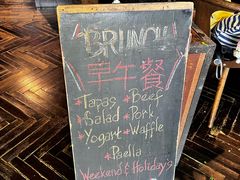 BRUNCH
早午餐
*Tapas *Beef
*Salad *Pork
*Yogart *Waffle
*Paella
Weekend & Holidays